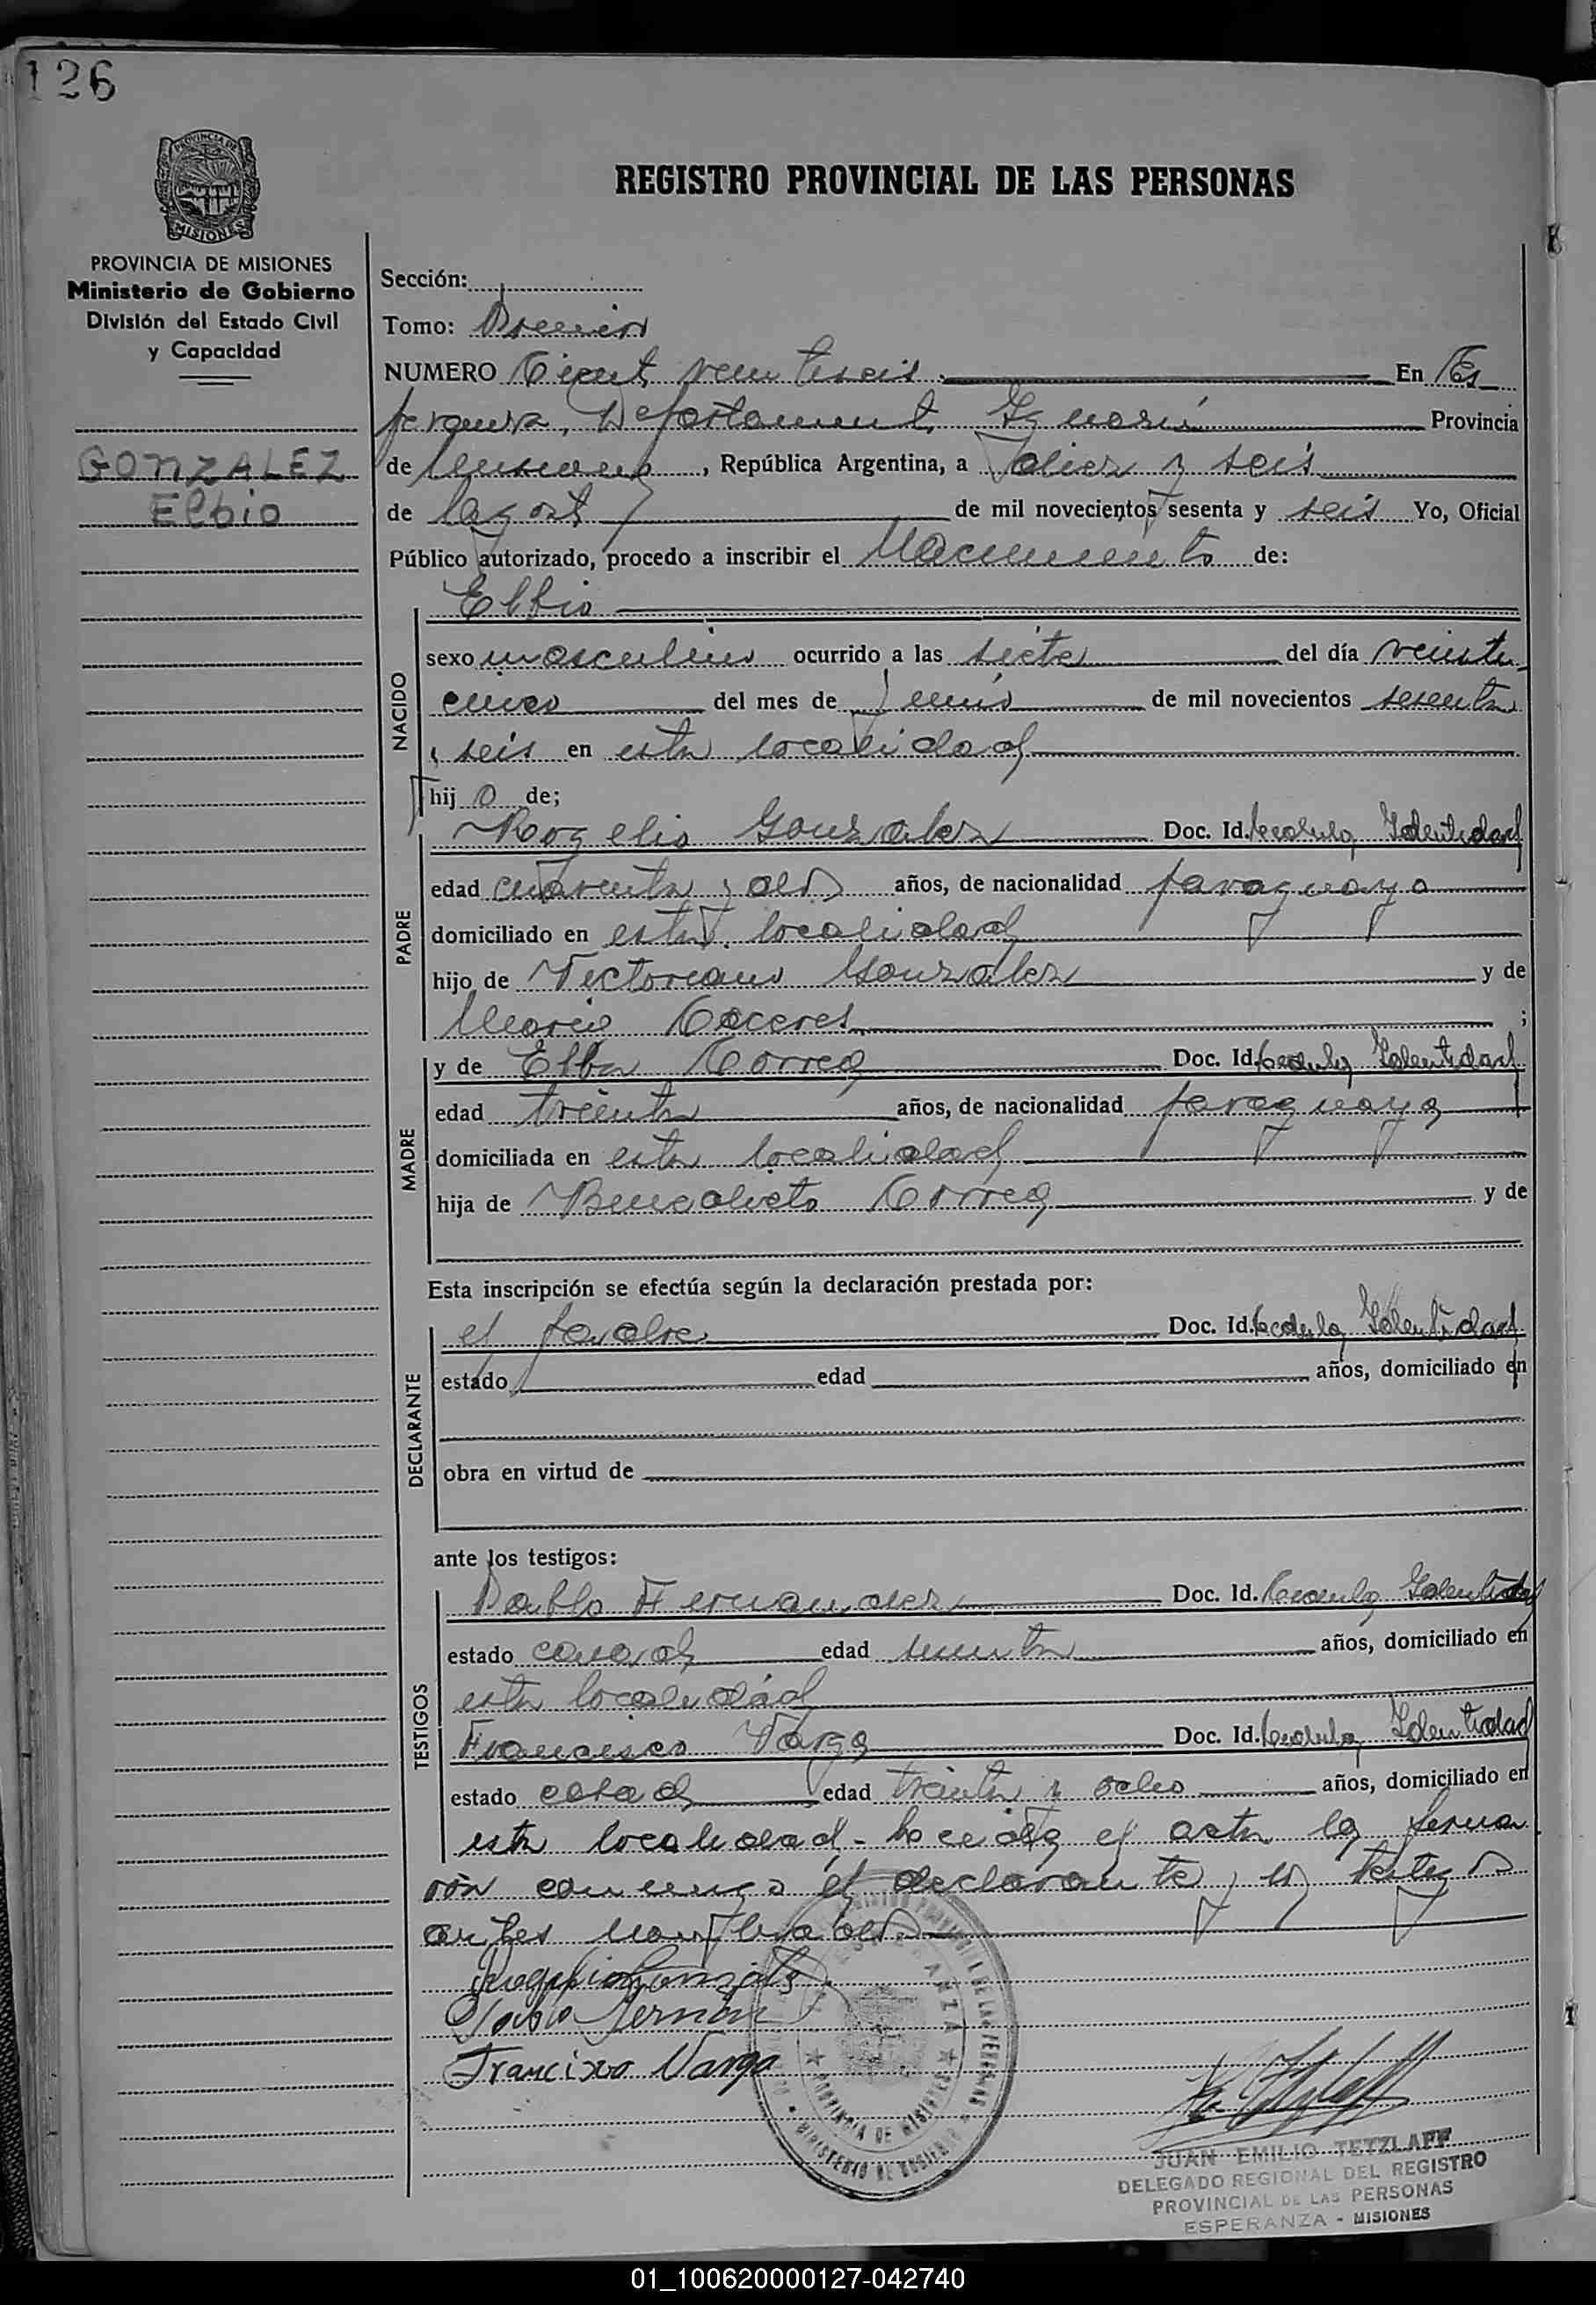 126
PROVINCIA DE
MISIONES
REGISTRO PROVINCIAL DE LAS PERSONAS
PROVINCIA DE MISIONES
Ministerio de Gobierno
División del Estado Civil
y Capacidad
GONZALEZ
Elbio
Sección:
Tomo: Primero
NUMERO Ciento veintiseis En Es
peranza, Departamento Iguazú Provincia
de Misiones, República Argentina, a diez y seis
de Agosto de mil novecientos sesenta y seis Yo, Oficial
Público autorizado, procedo a inscribir el Nacimiento de:
Elbio
NACIDO
sexo masculino ocurrido a las siete del día veinti
cinco del mes de Junio de mil novecientos sesenta
y seis en esta localidad
hij o de;
PADRE
Rogelio Gonzalez Doc. Id. Cedula Identidad
edad cuarenta y dos años, de nacionalidad paraguaya
domiciliado en esta localidad
hijo de Victoriano Gonzalez y de
Maria Caceres ;
MADRE
y de Elba Correa Doc. Id. Cedula Identidad
edad treinta años, de nacionalidad paraguaya
domiciliada en esta localidad
hija de Benedicto Correa y de
Esta inscripción se efectúa según la declaración prestada por:
DECLARANTE
el padre Doc. Id. Cedula Identidad
estado edad años, domiciliado en
obra en virtud de
ante los testigos:
TESTIGOS
Pablo Fernandez Doc. Id. Cedula Identidad
estado casado edad años, domiciliado en
esta localidad
Francisco Varga Doc. Id. Cedula Identidad
estado casado edad treinta y ocho años, domiciliado en
esta localidad - Leida el acta la firma
ron conmigo el declarante y los testigos
antes nombrados
Rogelio Gonzalez
Pablo Fernan
Francisco Varga
ESPERANZA
PROVINCIA DE MISIONES
MINISTERIO DE GOBIERNO
JUAN EMILIO TETZLAFF
DELEGADO REGIONAL DEL REGISTRO
PROVINCIAL DE LAS PERSONAS
ESPERANZA - MISIONES
01_100620000127-042740